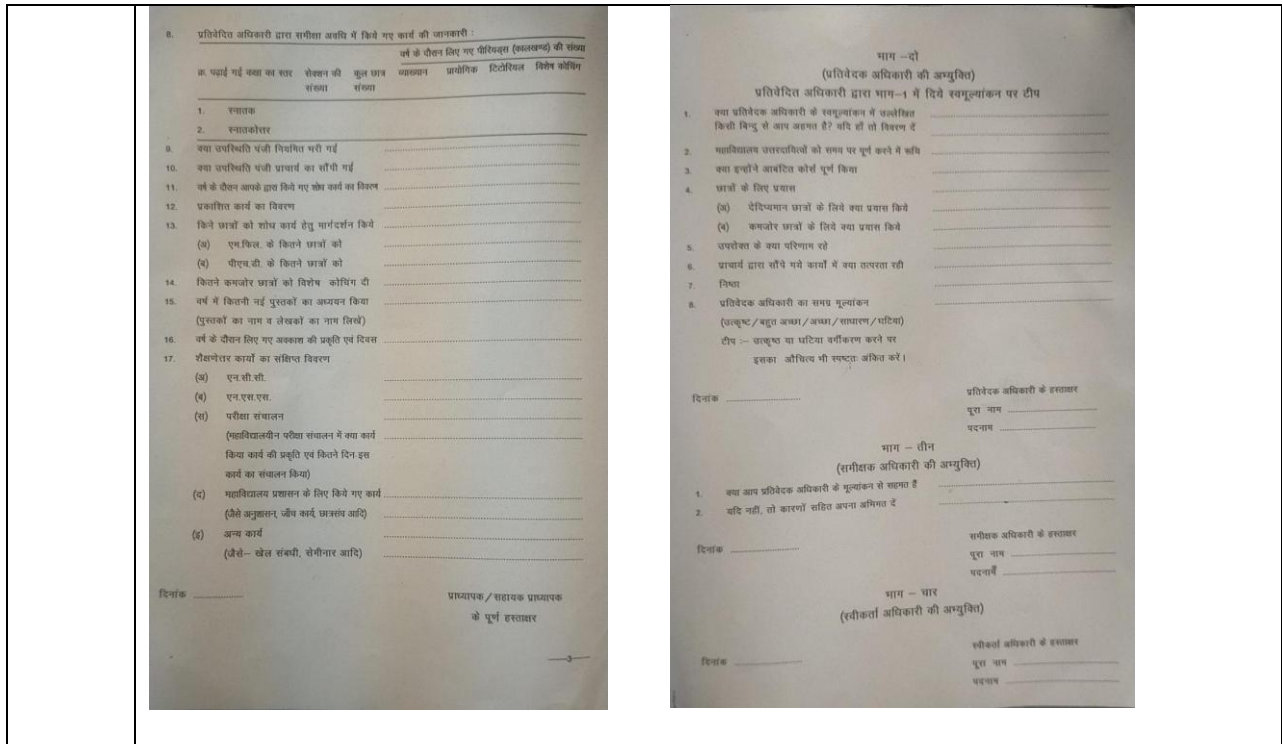 8. प्रतिवेदित अधिकारी द्वारा समीक्षा अवधि में किये गए कार्य की जानकारी :
वर्ष के दौरान लिए गए पीरियड्स (कालखण्ड) की संख्या
क्र. पढ़ाई गई कक्षा का स्तर सेक्शन की कुल छात्र व्याख्यान प्रायोगिक टिटोरियल विशेष कोचिंग
संख्या संख्या
1. स्नातक
2. स्नातकोत्तर
9. क्या उपस्थिति पंजी नियमित भरी गई
10. क्या उपस्थिति पंजी प्राचार्य का सौंपी गई
11. वर्ष के दौरान आपके द्वारा किये गए शोध कार्य का विवरण
12. प्रकाशित कार्य का विवरण
13. किने छात्रों को शोध कार्य हेतु मार्गदर्शन किये
(अ) एम.फिल. के कितने छात्रों को
(ब) पीएच.डी. के कितने छात्रों को
14. कितने कमजोर छात्रों को विशेष कोचिंग दी
15. वर्ष में कितनी नई पुस्तकों का अध्ययन किया
(पुस्तकों का नाम व लेखकों का नाम लिखें)
16. वर्ष के दौरान लिए गए अवकाश की प्रकृति एवं दिवस
17. शैक्षणेत्तर कार्यों का संक्षिप्त विवरण
(अ) एन.सी.सी.
(ब) एन.एस.एस.
(स) परीक्षा संचालन
(महाविद्यालयीन परीक्षा संचालन में क्या कार्य
किया कार्य की प्रकृति एवं कितने दिन इस
कार्य का संचालन किया)
(द) महाविद्यालय प्रशासन के लिए किये गए कार्य
(जैसे अनुशासन, जाँच कार्य, छात्रसंघ आदि)
(इ) अन्य कार्य
(जैसे– खेल संबधी, सेमीनार आदि)
दिनांक
प्राध्यापक/सहायक प्राध्यापक
के पूर्ण हस्ताक्षर
3
भाग –दो
(प्रतिवेदक अधिकारी की अभ्युक्ति)
प्रतिवेदित अधिकारी द्वारा भाग–1 में दिये स्वमूल्यांकन पर टीप
1. क्या प्रतिवेदक अधिकारी के स्वमूल्यांकन में उल्लेखित
किसी बिन्दु से आप अहमत है? यदि हाँ तो विवरण दें
2. महाविद्यालय उत्तरदायित्वों को समय पर पूर्ण करने में रूचि
3. क्या इन्होंने आबंटित कोर्स पूर्ण किया
4. छात्रों के लिए प्रयास
(अ) देदिप्यमान छात्रों के लिये क्या प्रयास किये
(ब) कमजोर छात्रों के लिये क्या प्रयास किये
5. उपरोक्त के क्या परिणाम रहे
6. प्राचार्य द्वारा सौंपे गये कार्यों में क्या तत्परता रही
7. निष्ठा
8. प्रतिवेदक अधिकारी का समग्र मूल्यांकन
(उत्कृष्ट/बहुत अच्छा/अच्छा/साधारण/घटिया)
टीप :– उत्कृष्ठ या घटिया वर्गीकरण करने पर
इसका औचित्य भी स्पष्टतः अंकित करें।
प्रतिवेदक अधिकारी के हस्ताक्षर
दिनांक
पूरा नाम
पदनाम
भाग – तीन
(समीक्षक अधिकारी की अभ्युक्ति)
1. क्या आप प्रतिवेदक अधिकारी के मूल्यांकन से सहमत हैं
2. यदि नहीं, तो कारणों सहित अपना अभिमत दें
समीक्षक अधिकारी के हस्ताक्षर
दिनांक
पूरा नाम
पदनामँ
भाग – चार
(स्वीकर्ता अधिकारी की अभ्युक्ति)
स्वीकर्ता अधिकारी के हस्ताक्षर
दिनांक
पूरा नाम
पदनाम